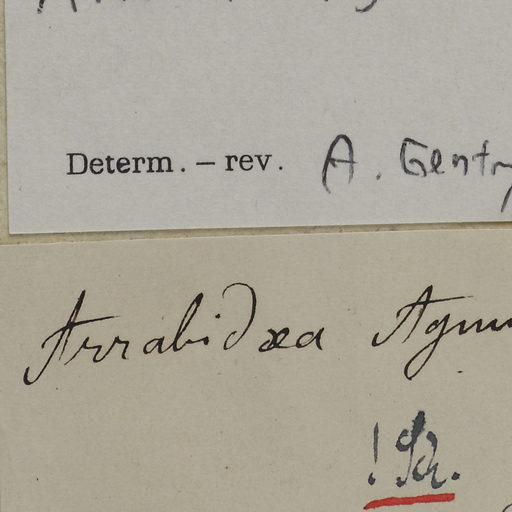 Determ. – rev. A. Gentry
Arrabidæa Agnu
! Sch.